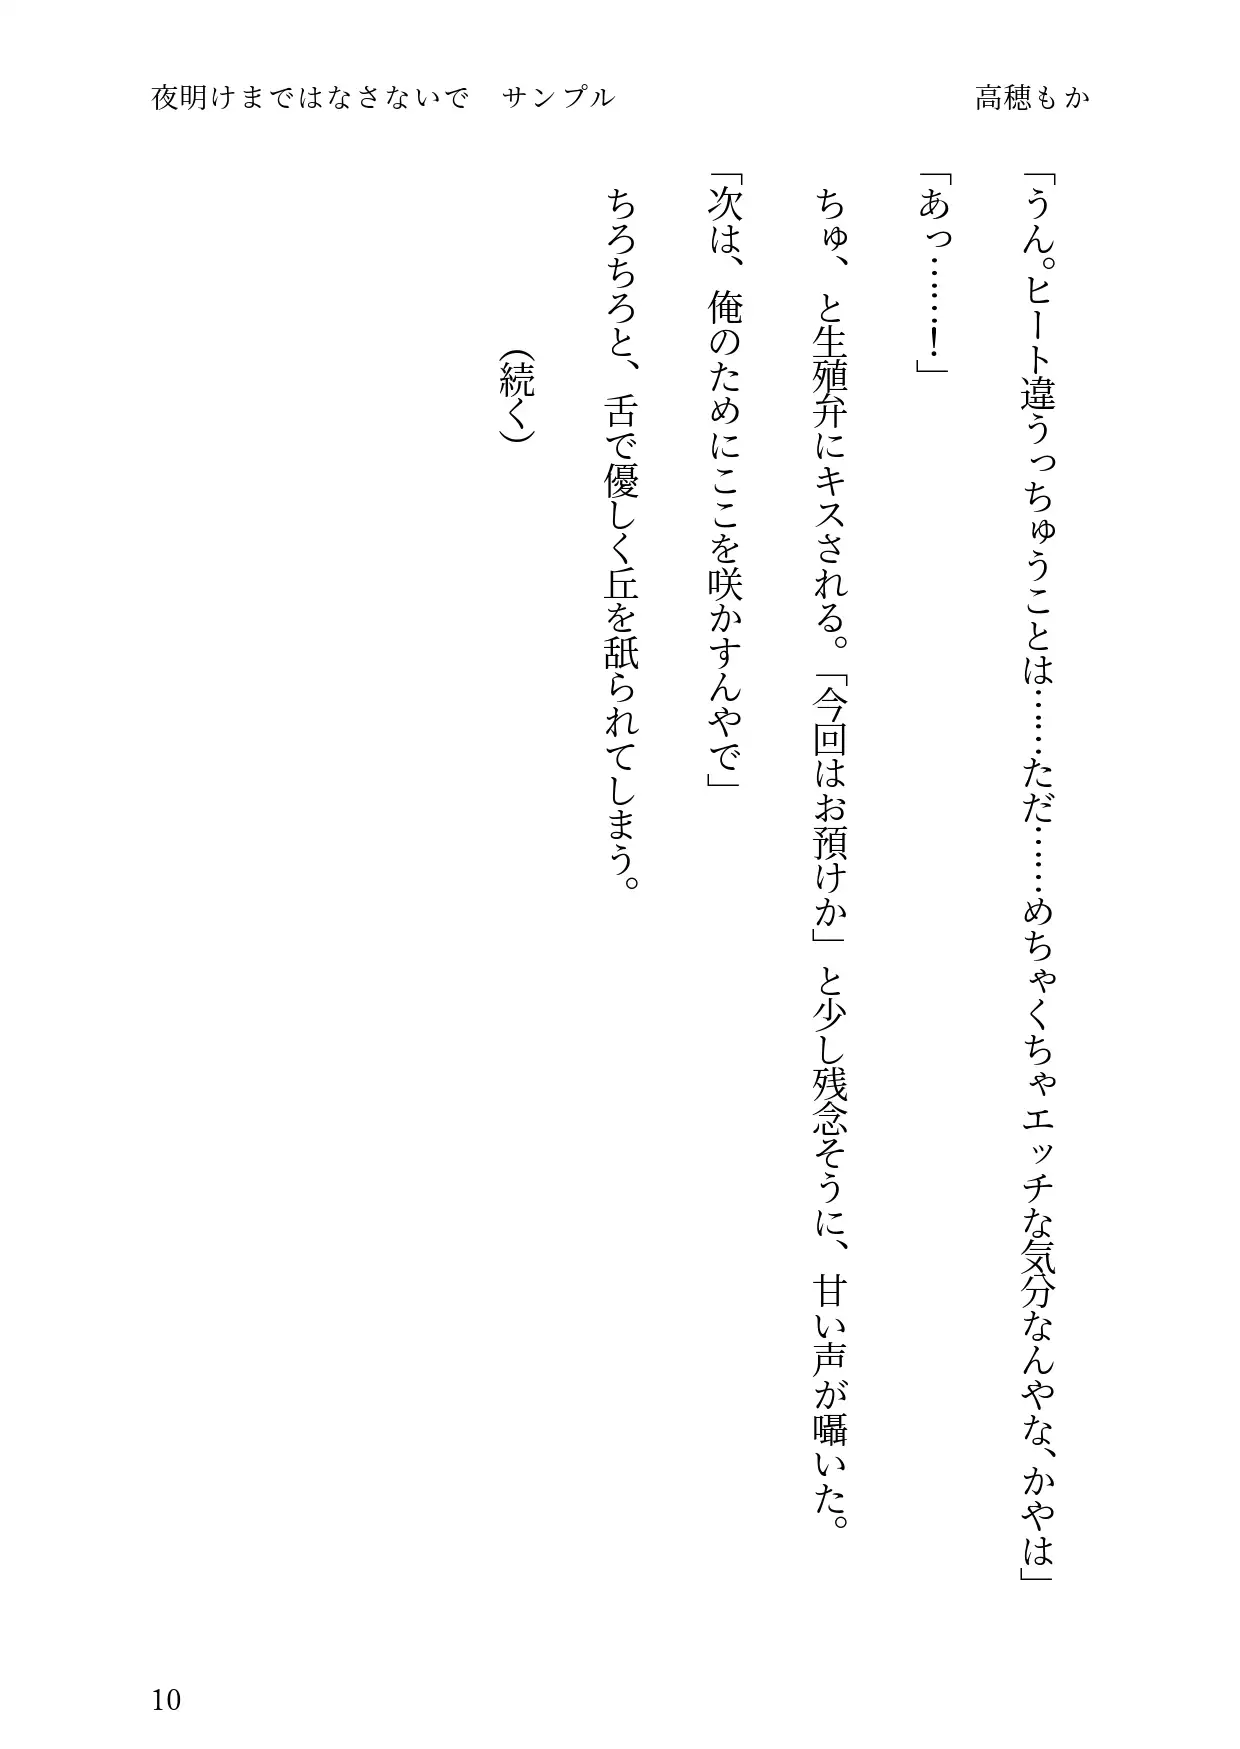 夜明けまではなさないで　サンプル
高穂もか
「うん。ヒート違うっちゅうことは……ただ……めちゃくちゃエッチな気分なんやな、かやは」
「あっ………！」
　ちゅ、と生殖弁にキスされる。「今回はお預けか」と少し残念そうに、甘い声が囁いた。
「次は、俺のためにここを咲かすんやで」
　ちろちろと、舌で優しく丘を舐られてしまう。
（続く）
10